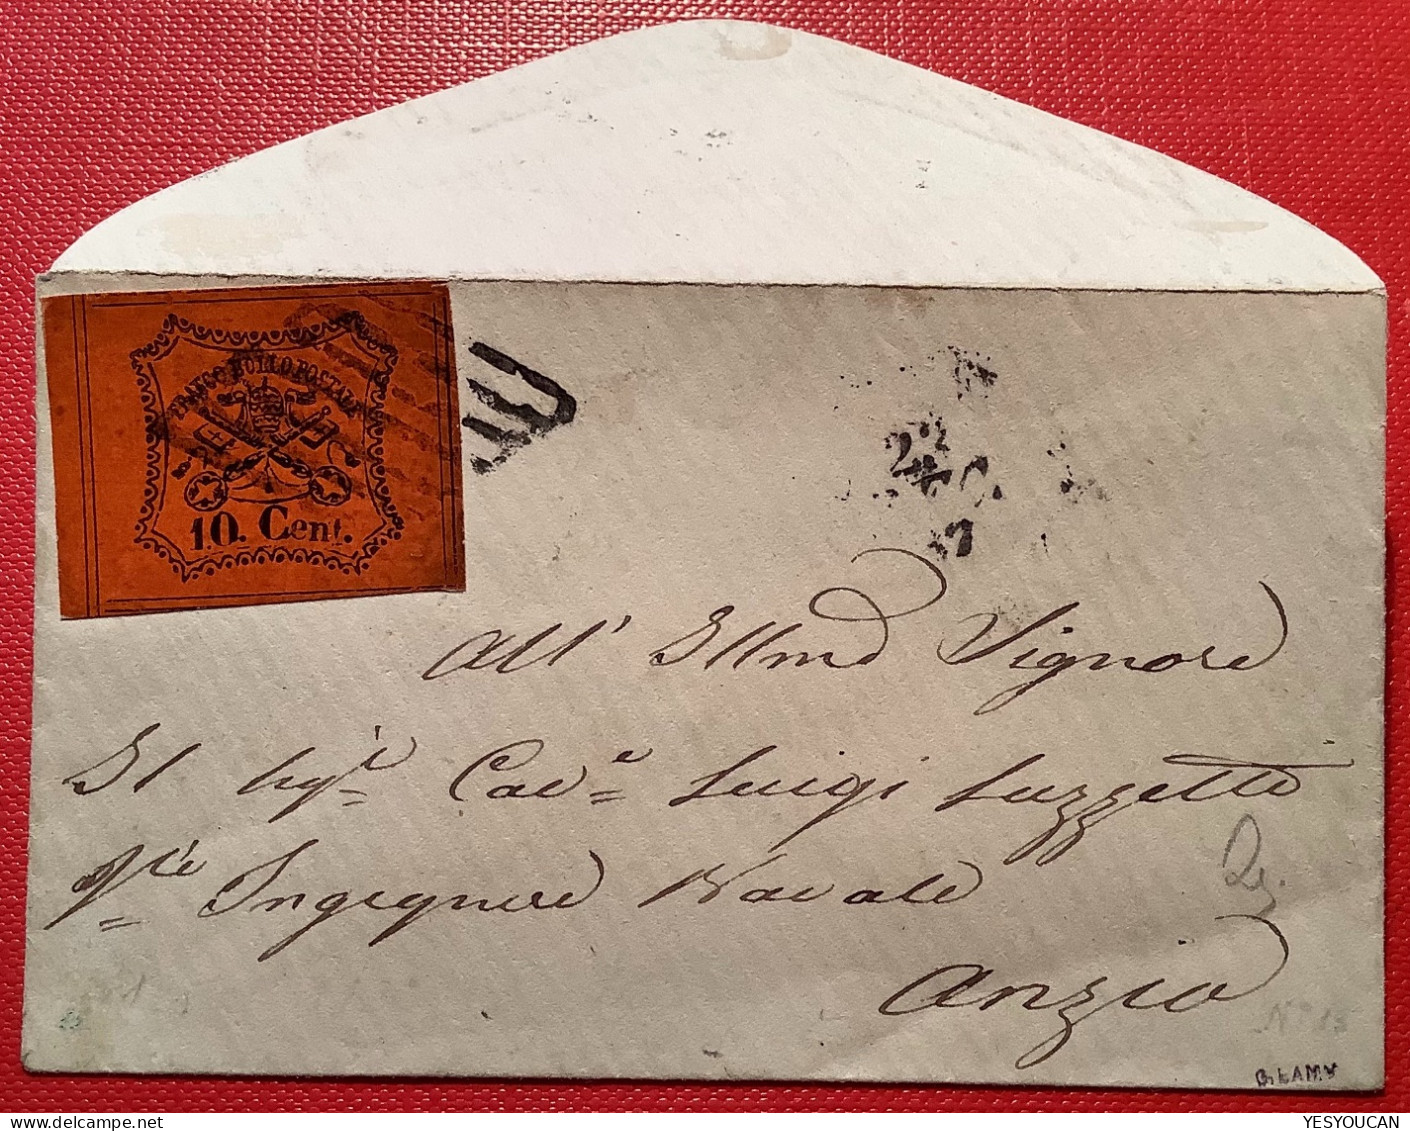 FRANCO BOLLO POSTALE
10. Cent.
22
All' Illmo Signore
Il Sigr Cave Luigi Luzzetti
Ingegnere Navale
Anzio
No 15
B. LAMY
YESYOUCAN